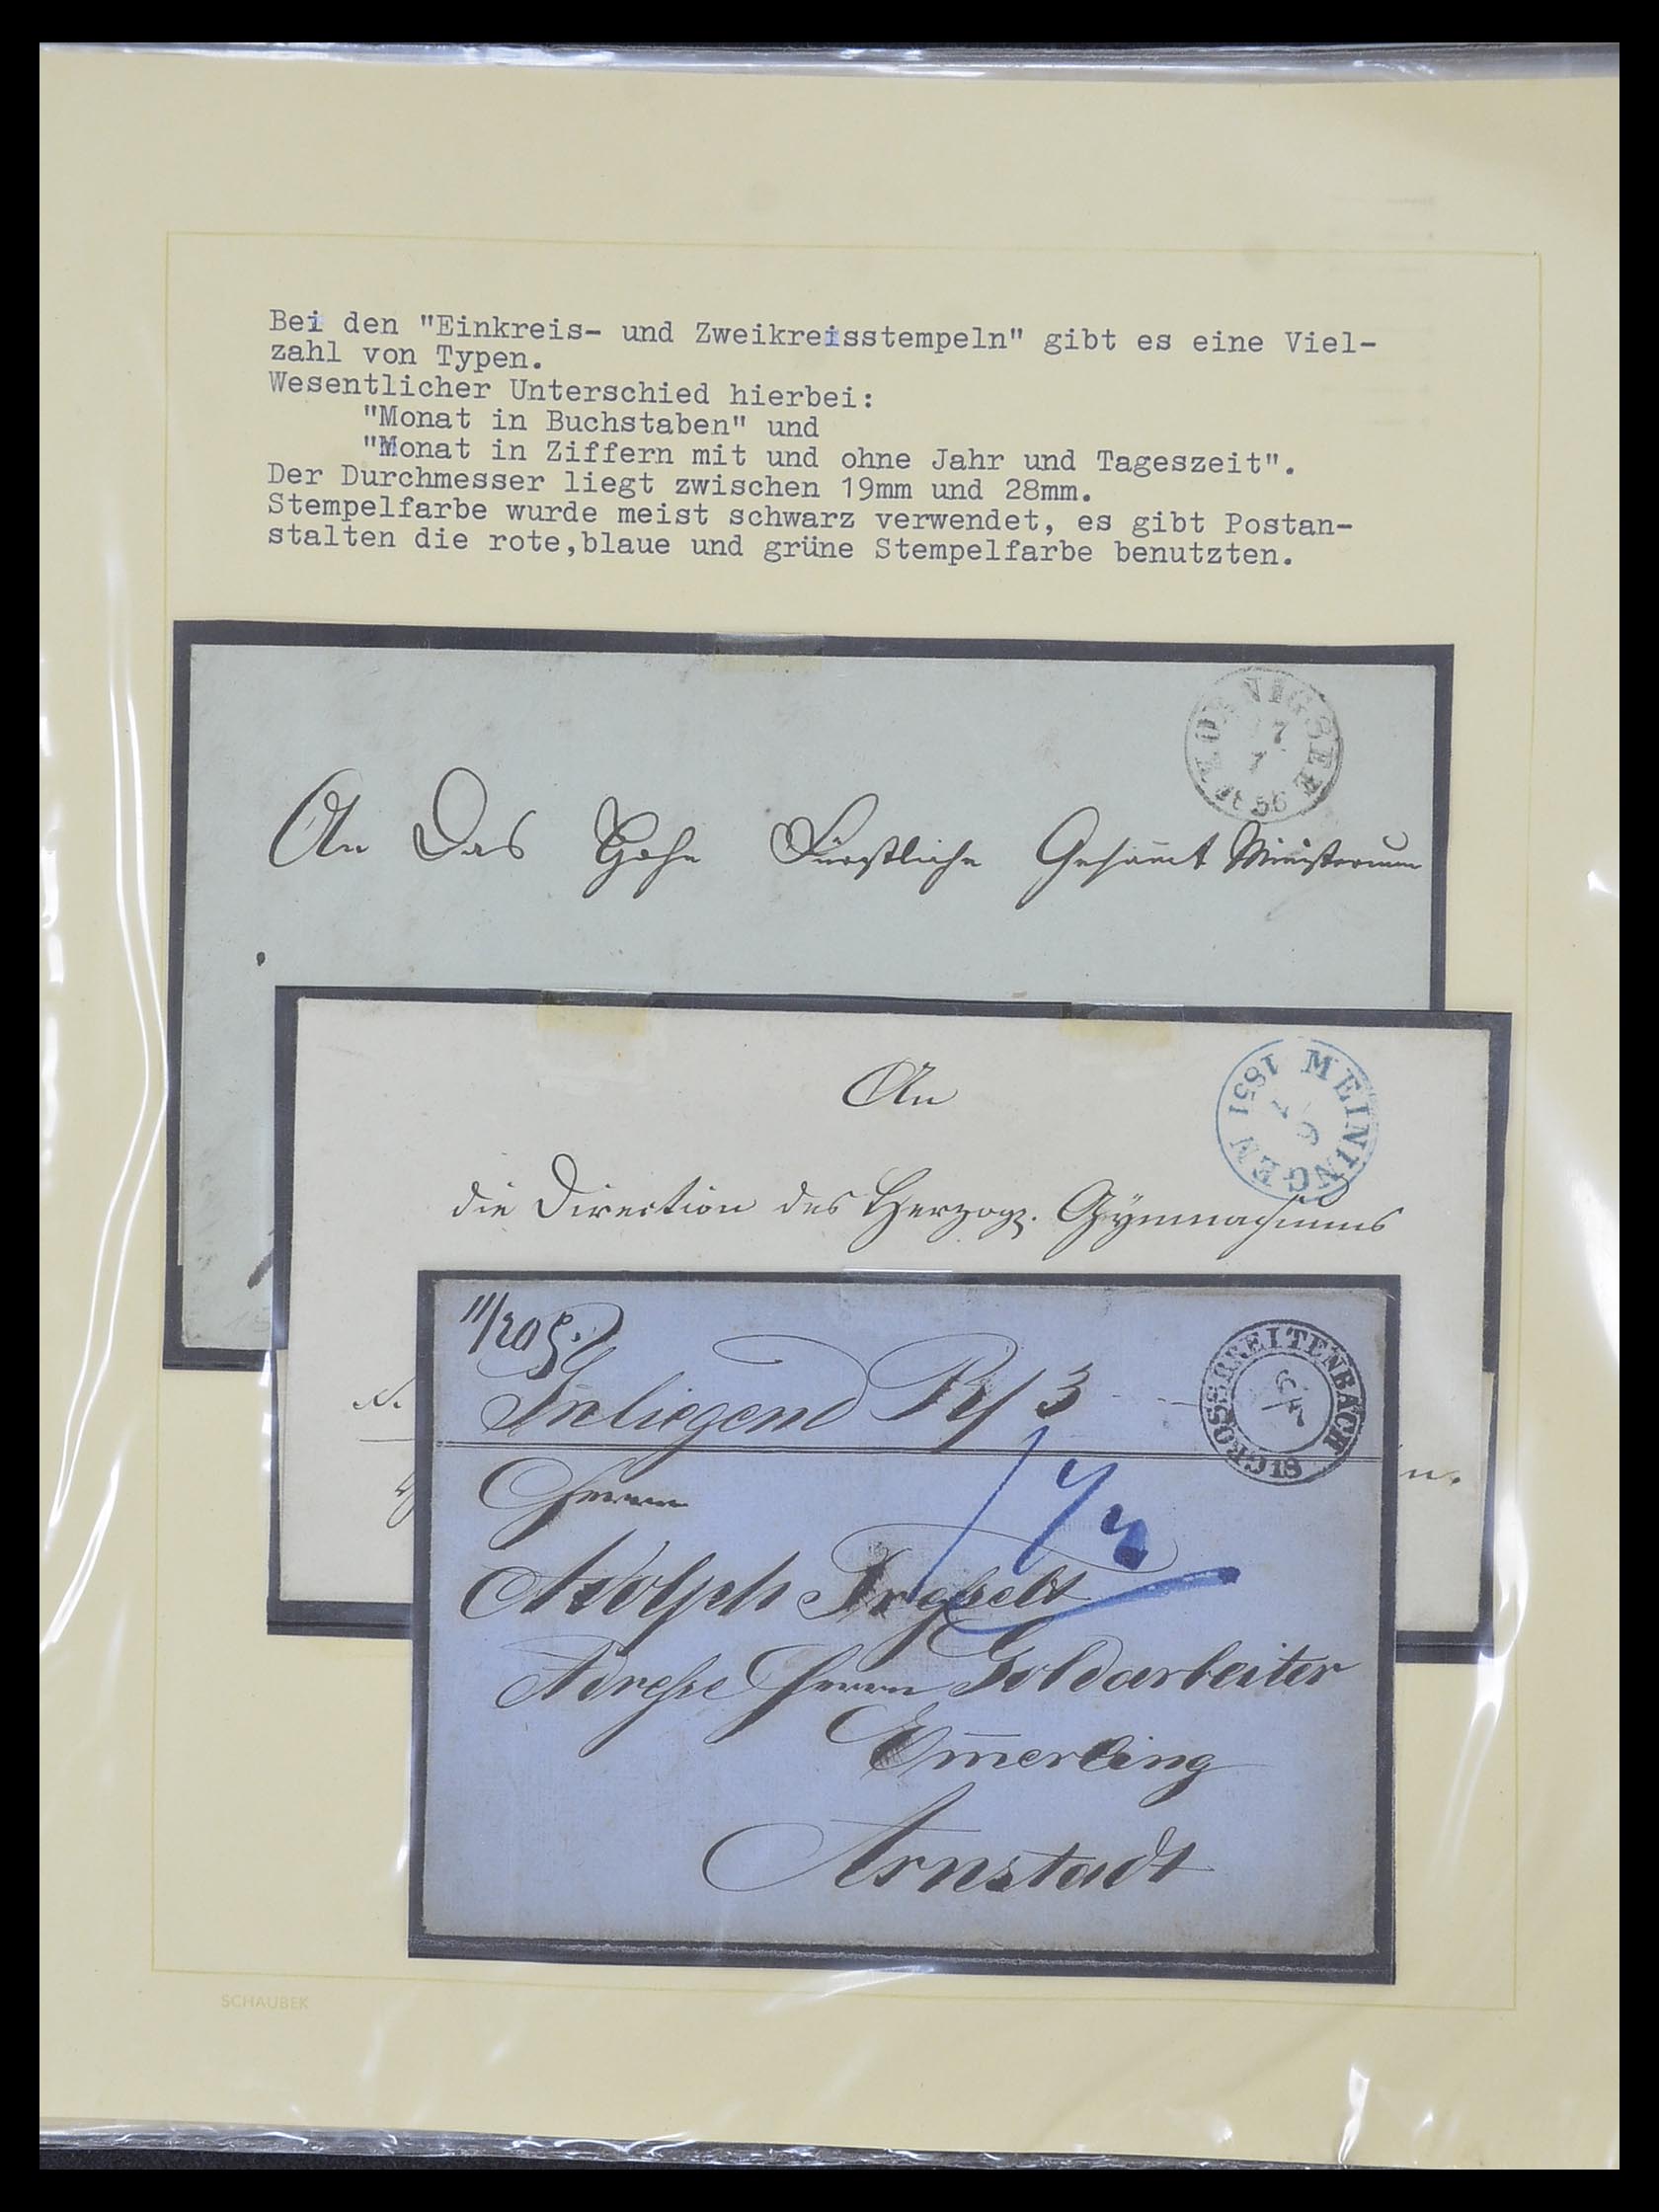 Bei den "Einkreis- und Zweikreisstempeln" gibt es eine Viel-
zahl von Typen.
Wesentlicher Unterschied hierbei:
"Monat in Buchstaben" und
"Monat in Ziffern mit und ohne Jahr und Tageszeit".
Der Durchmesser liegt zwischen 19mm und 28mm.
Stempelfarbe wurde meist schwarz verwendet, es gibt Postan-
stalten die rote,blaue und grüne Stempelfarbe benutzten.
KOENIGSEE
7
An Das Hohe Fürstliche Gesam̅t Ministerium
MEININGEN 1851
An
die Direction des Herzogl. Gymnasiums
GROSSBREITENBACH
Inliegend 3
Herrn
Adolph
Adresse Herrn Goldarbeiter
Em̅erling
Arnstadt
SCHAUBEK